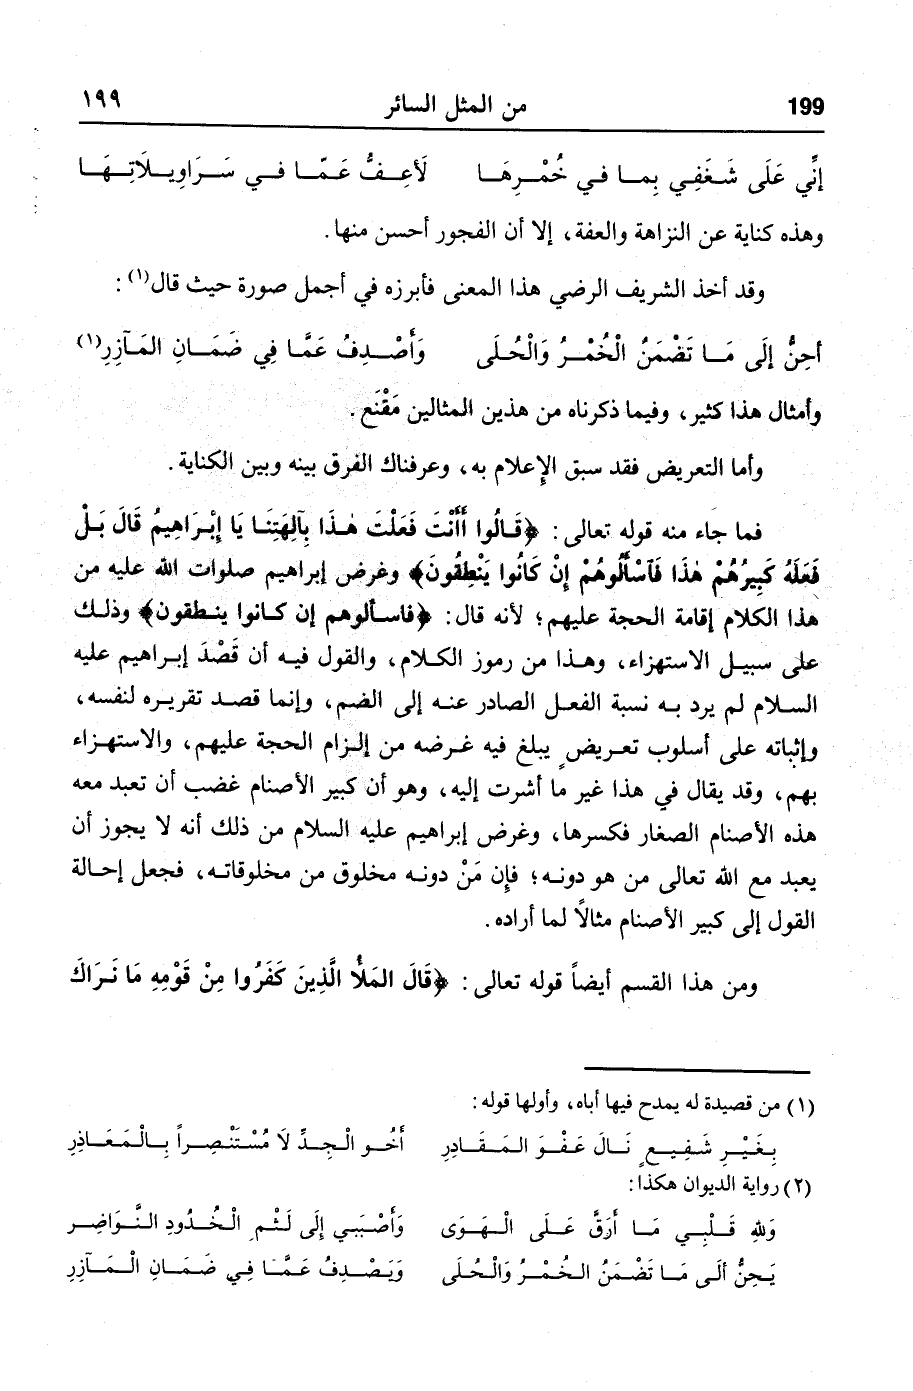 199 من المثل السائر ١٩٩
إِنِّي عَلَى شَغَفِي بِمـا في خُمْـرِهَـا لَأعِـفُّ عَـمَّـا فـي سَـرَاوِيـلَاتِـهَـا
وهذه كناية عن النزاهة والعفة، إلا أن الفجور أحسن منها.
وقد أخذ الشريف الرضي هذا المعنى فأبرزه في أجمل صورة حيث قال(١):
أحِنُّ إلَى مَـا تَضْمَنُ الْخُمْرُ وَالْحُلَى وَأَصْـدِفُ عَمَّـا فِي ضَمَـانِ المَـآزِرِ(١)
وأمثال هذا كثير، وفيما ذكرناه من هذين المثالين مَقْنَع.
وأما التعريض فقد سبق الإعلام به، وعرفناك الفرق بينه وبين الكناية.
فما جاء منه قوله تعالى: ﴿قَـالُوا أَأَنْتَ فَعَلْتَ هـٰذَا بِآلِهَتِنَـا يَا إِبْـرَاهِيمُ قَالَ بَـلْ
فَعَلَهُ كَبِيرُهُمْ هٰذَا فَآسْأَلُوهُمْ إِنْ كَانُوا يَنْطِقُونَ﴾ وغرض إبراهيم صلوات الله عليه من
هذا الكلام إقامة الحجة عليهم؛ لأنه قال: ﴿فاسـألوهم إن كـانوا ينـطقون﴾ وذلـك
على سبيـل الاستهزاء، وهـذا من رموز الكـلام، والقول فيـه أن قَصْدَ إبـراهيم عليه
السـلام لم يرد بـه نسبة الفعـل الصادر عنـه إلى الضم، وإنما قصـد تقريـره لنفسه،
وإثباته على أسلوب تعـريضٍ يبلغ فيه غـرضه من إلـزام الحجة عليهم، والاستهـزاء
بهم، وقد يقال في هذا غير ما أشرت إليه، وهو أن كبير الأصنام غضب أن تعبد معه
هذه الأصنام الصغار فكسرها، وغرض إبراهيم عليه السلام من ذلك أنه لا يجوز أن
يعبد مع الله تعالى من هو دونـه؛ فإن مَنْ دونـه مخلوق من مخلوقاتـه، فجعل إحـالة
القول إلى كبير الأصنام مثالاً لما أراده.
ومن هذا القسم أيضاً قوله تعالى: ﴿قَالَ المَلأُ الَّذِينَ كَفَرُوا مِنْ قَوْمِهِ مَا نَـرَاكَ
(١) من قصيدة له يمدح فيها أباه، وأولها قوله:
بِغَيْـرِ شَفِيـعٍ نَـالَ عَفْـوَ المَـقَـادِرِ أَخُـو الْجِـدِّ لَا مُسْتَنْصِـراً بِـالْمَعَـاذِرِ
(٢) رواية الديوان هكذا:
وَللهِ قَـلْبِـي مَـا أَرَقَّ عَـلَى الْـهَـوَى وَأَصْـبَـى إِلَى لَـثْـمِ الْـخُـدُودِ النَّـوَاضِـرِ
يَـحِنُّ ألَـى مَـا تَضْمَنُ الـخُمْـرُ وَالْحُلَى وَيَـصْـدِفُ عَـمَّـا فِي ضَمَـانِ الْـمَـآزِرِ